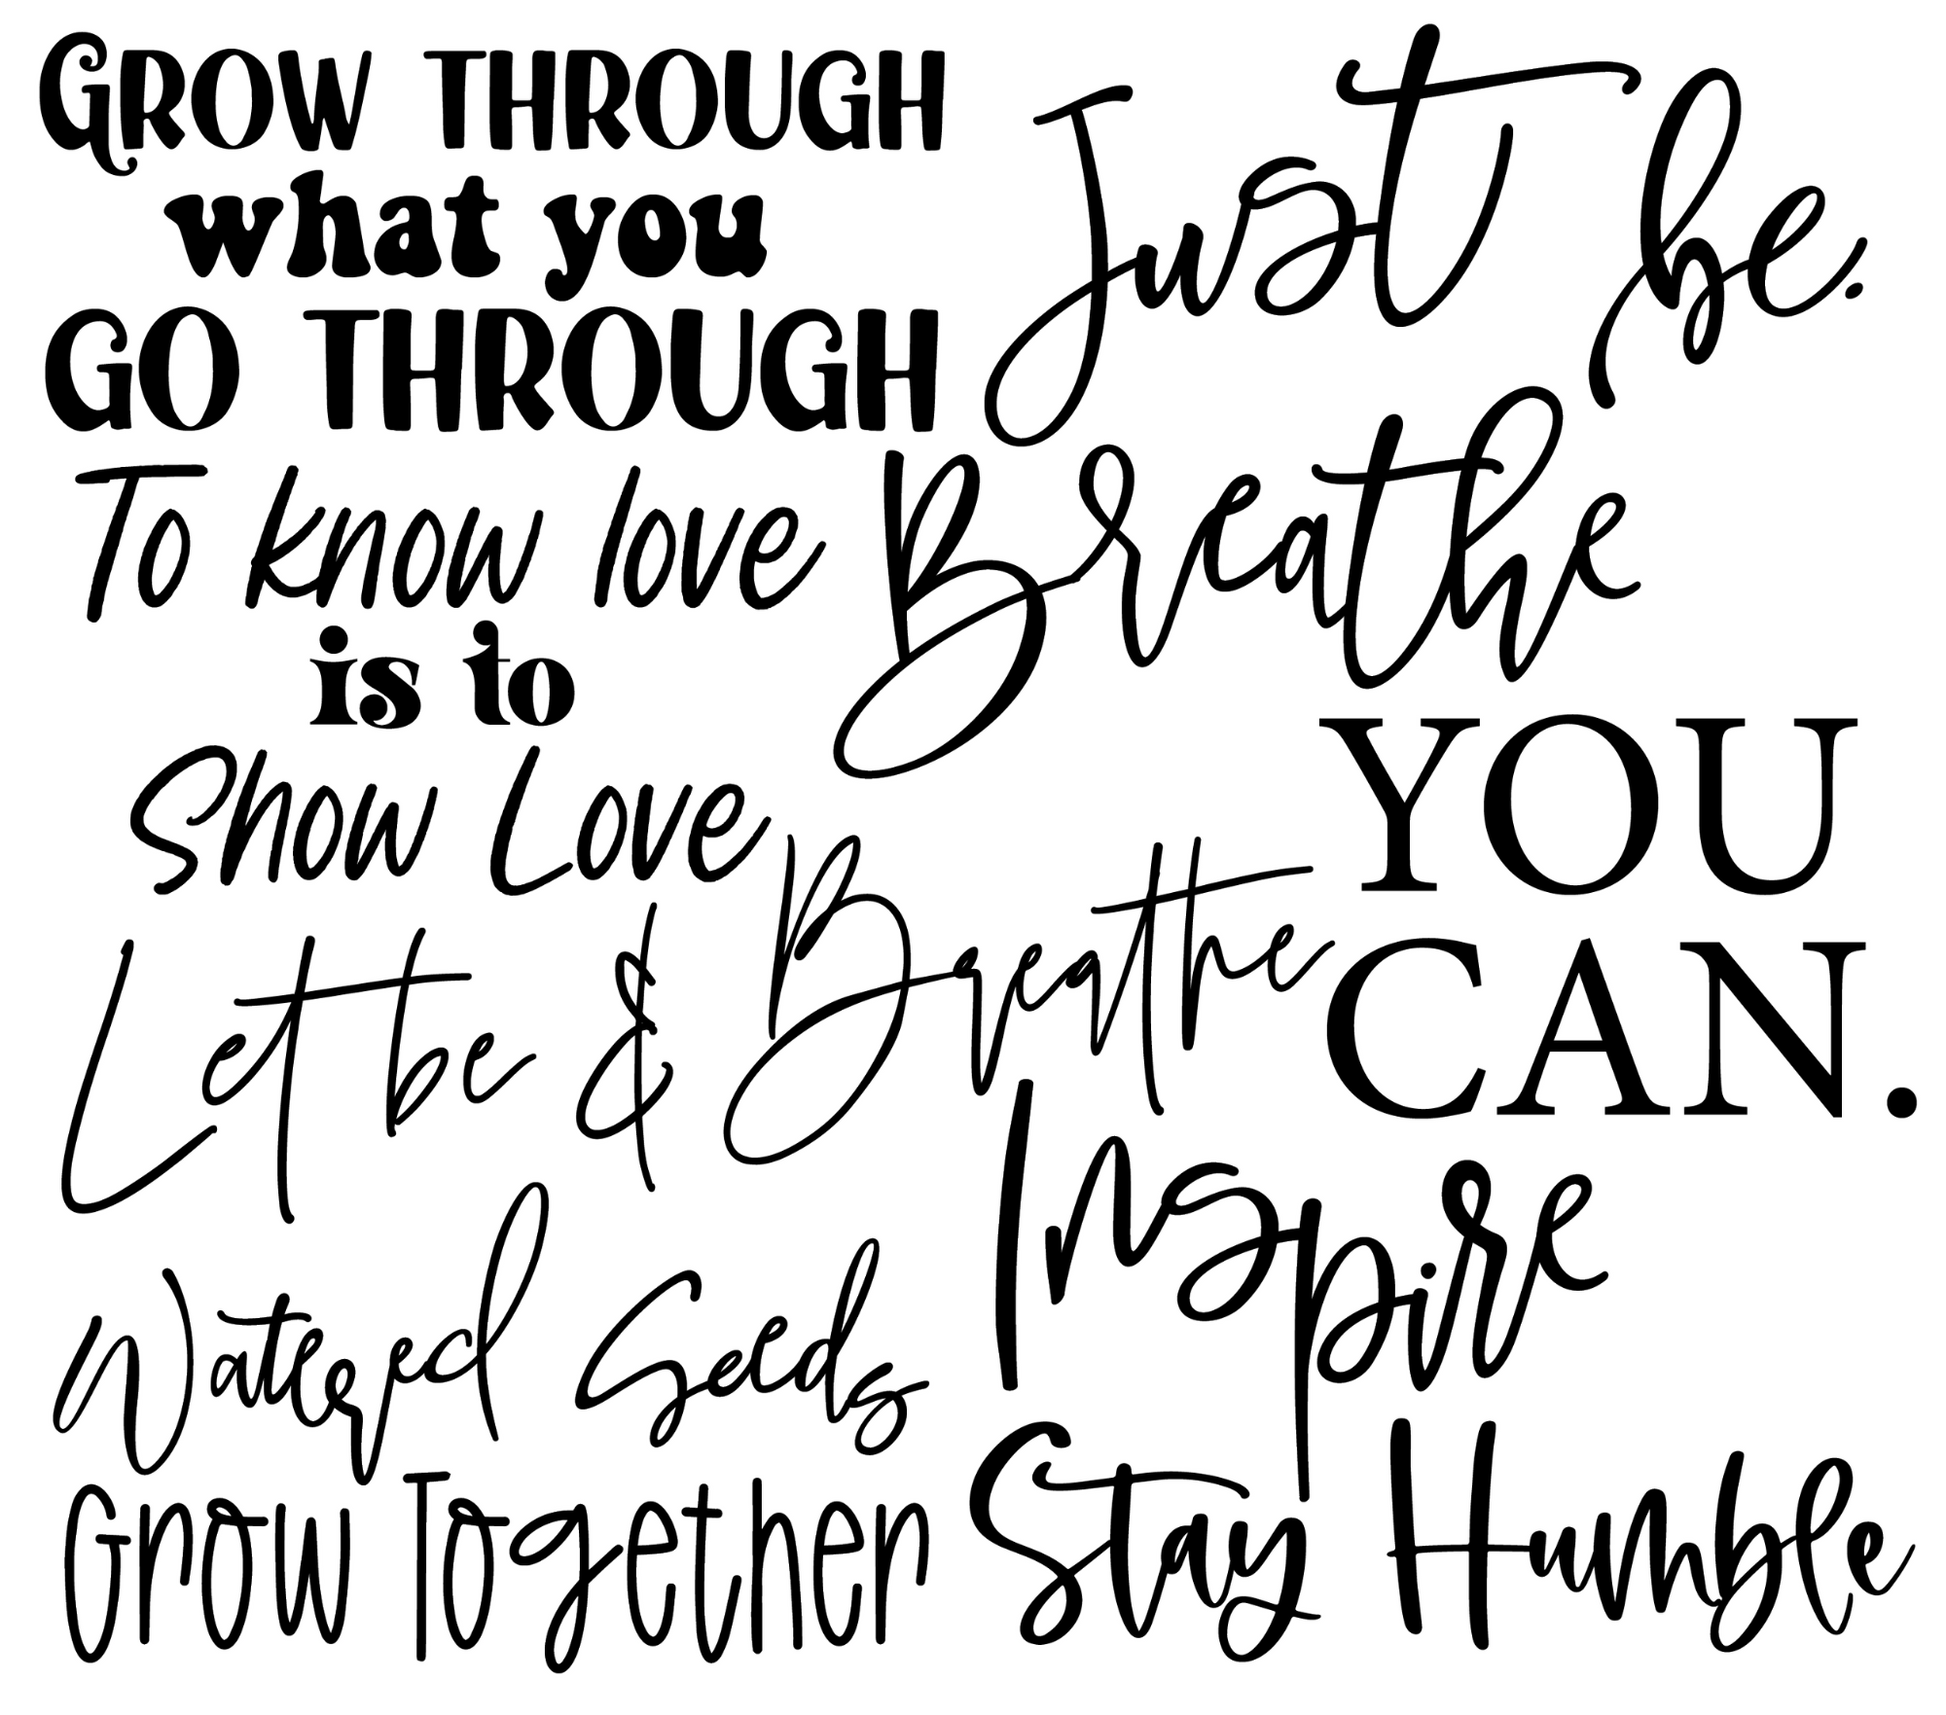 GROW THROUGH
what you
GO THROUGH
To know love
is to
Show Love
Let it be & Breathe
Watered Seeds
Grow Together
Just be.
Breathe
YOU
CAN.
Inspire
Stay Humble